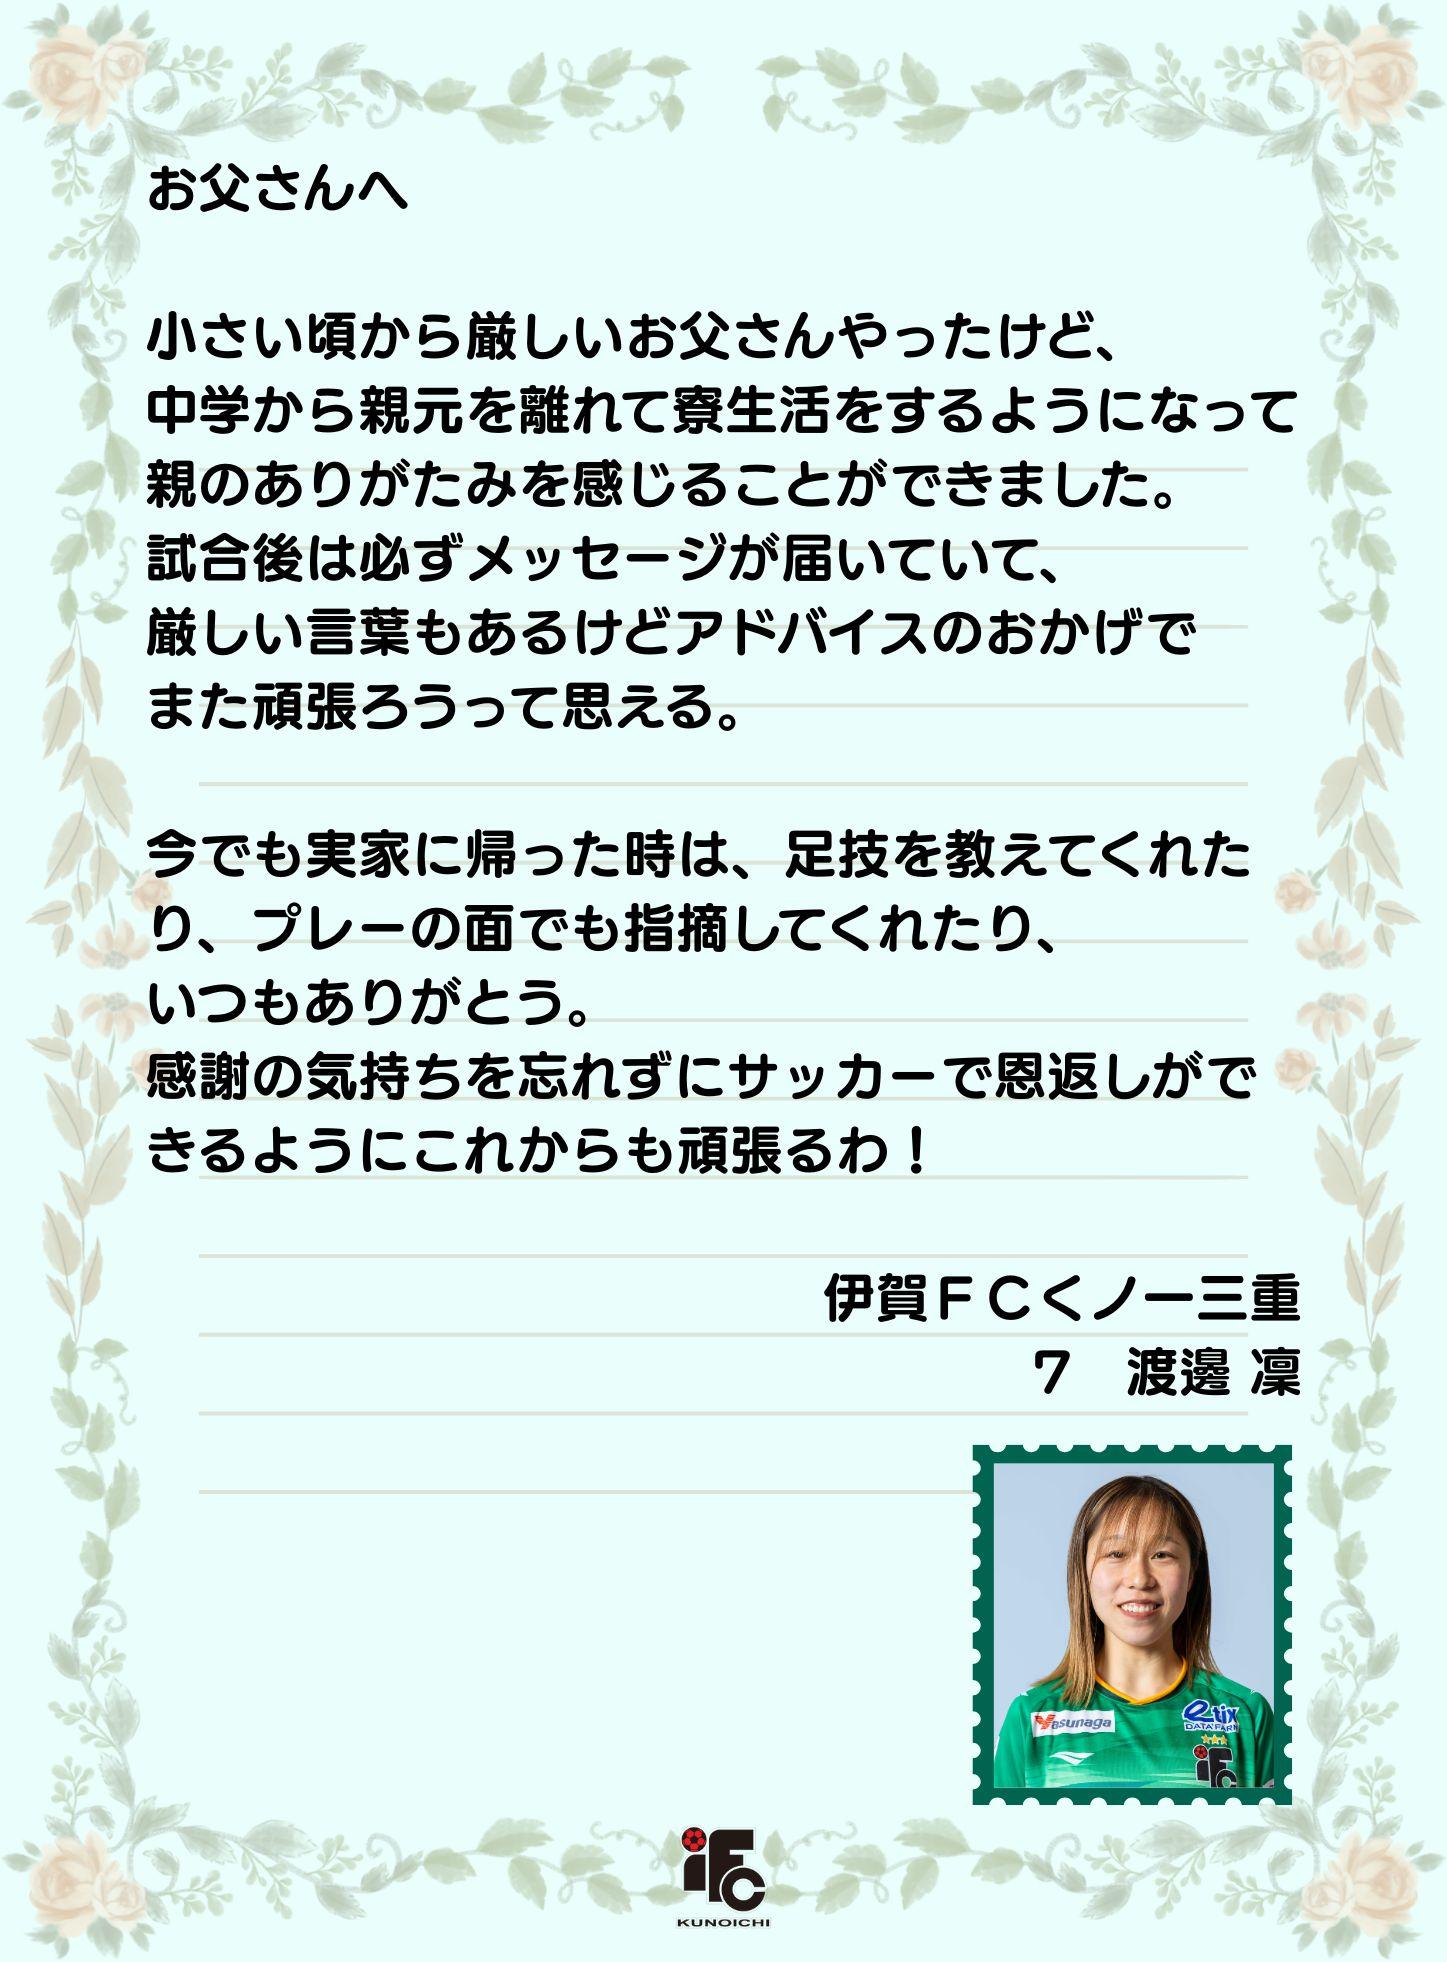 お父さんへ
小さい頃から厳しいお父さんやったけど、
中学から親元を離れて寮生活をするようになって
親のありがたみを感じることができました。
試合後は必ずメッセージが届いていて、
厳しい言葉もあるけどアドバイスのおかげで
また頑張ろうって思える。
今でも実家に帰った時は、足技を教えてくれた
り、プレーの面でも指摘してくれたり、
いつもありがとう。
感謝の気持ちを忘れずにサッカーで恩返しがで
きるようにこれからも頑張るわ！
伊賀ＦＣくノ一三重
７　渡邊 凜
Yasunaga
etix
DATA FARM
iFC
iFC
KUNOICHI